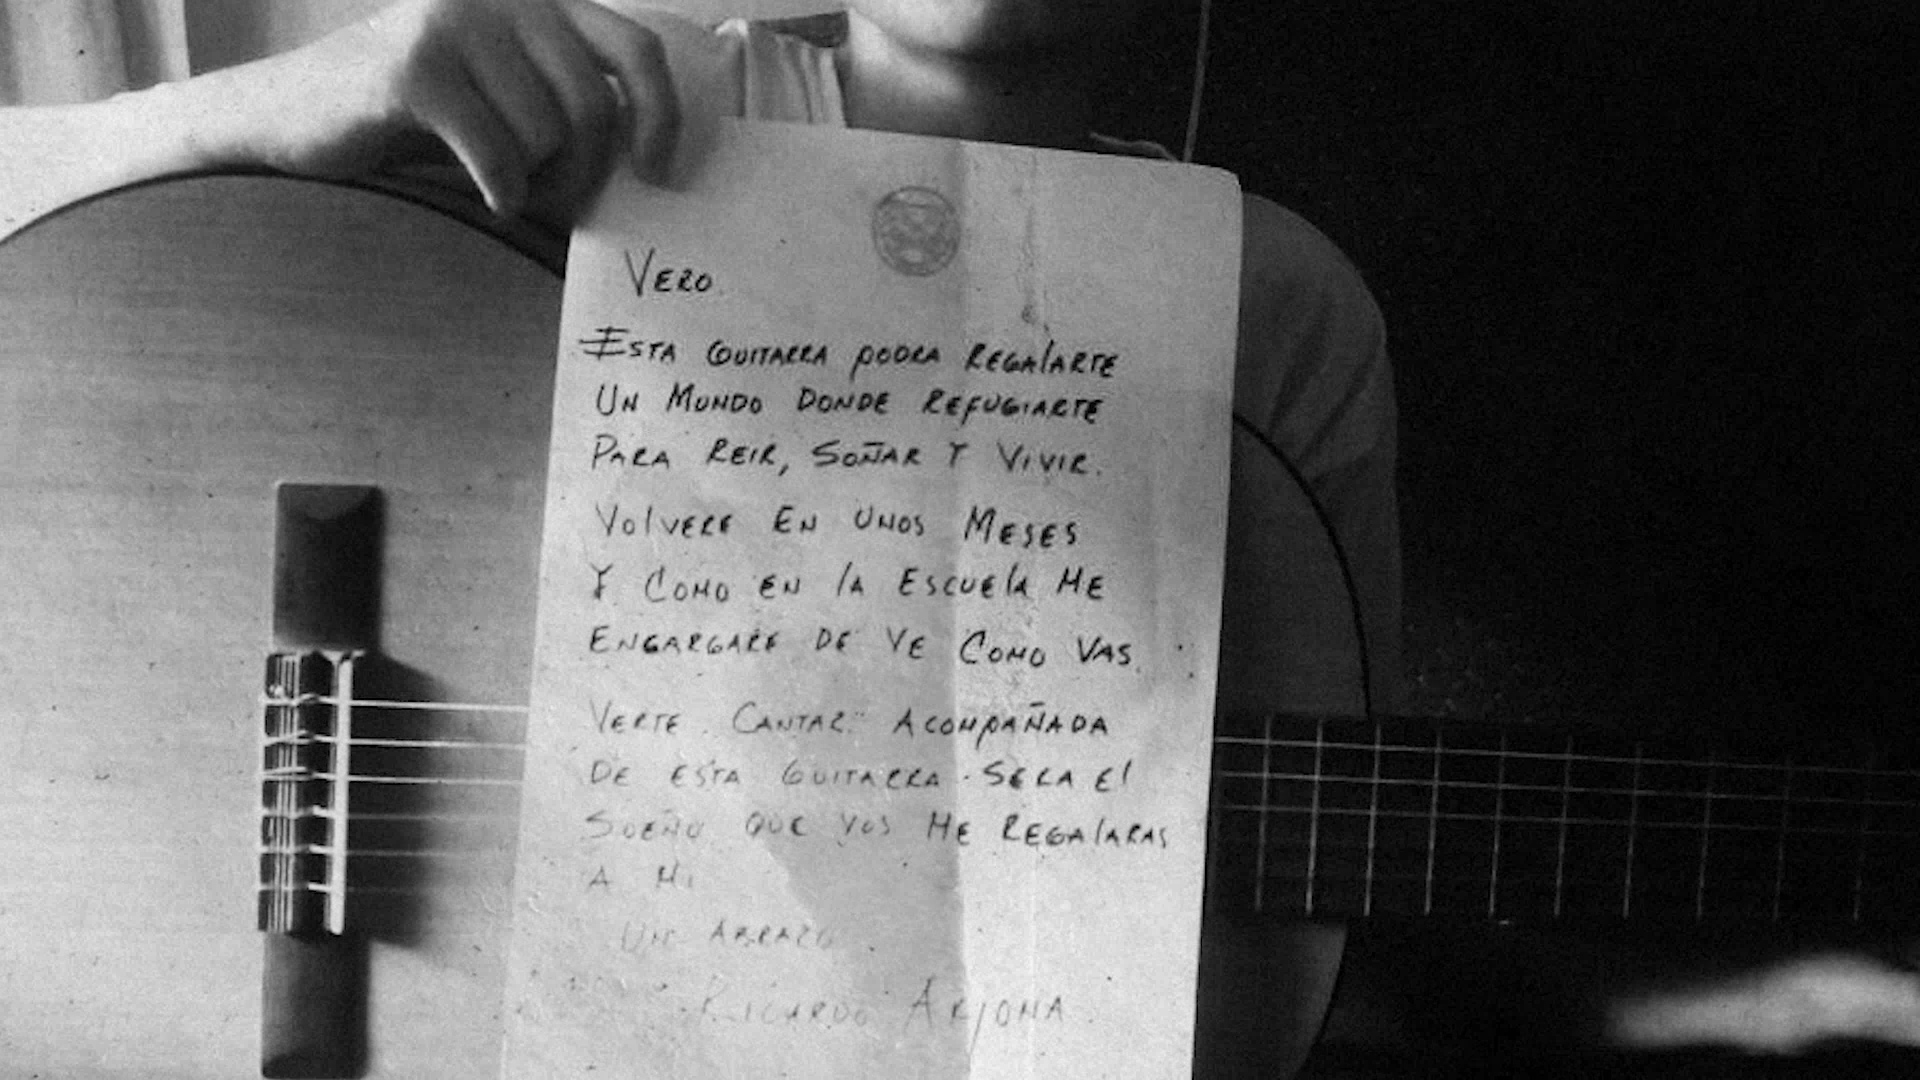 VERO.
ESTA GUITARRA PODRA REGAlARTE
UN MUNDO DONDE REFUGIARTE
PARA REIR, SOÑAR Y VIVIR.
VOlVERE EN UNOS MESES
Y COMO EN lA ESCUElA ME
ENGARGARE DE VE COMO VAS.
VERTE CANTAR ACOMPAÑADA
DE ESTA GUITARRA SERA El
SUEÑO QUE VOS ME REGAlARAS
A MI
UN ABRAZO
RICARDO ARJONA.